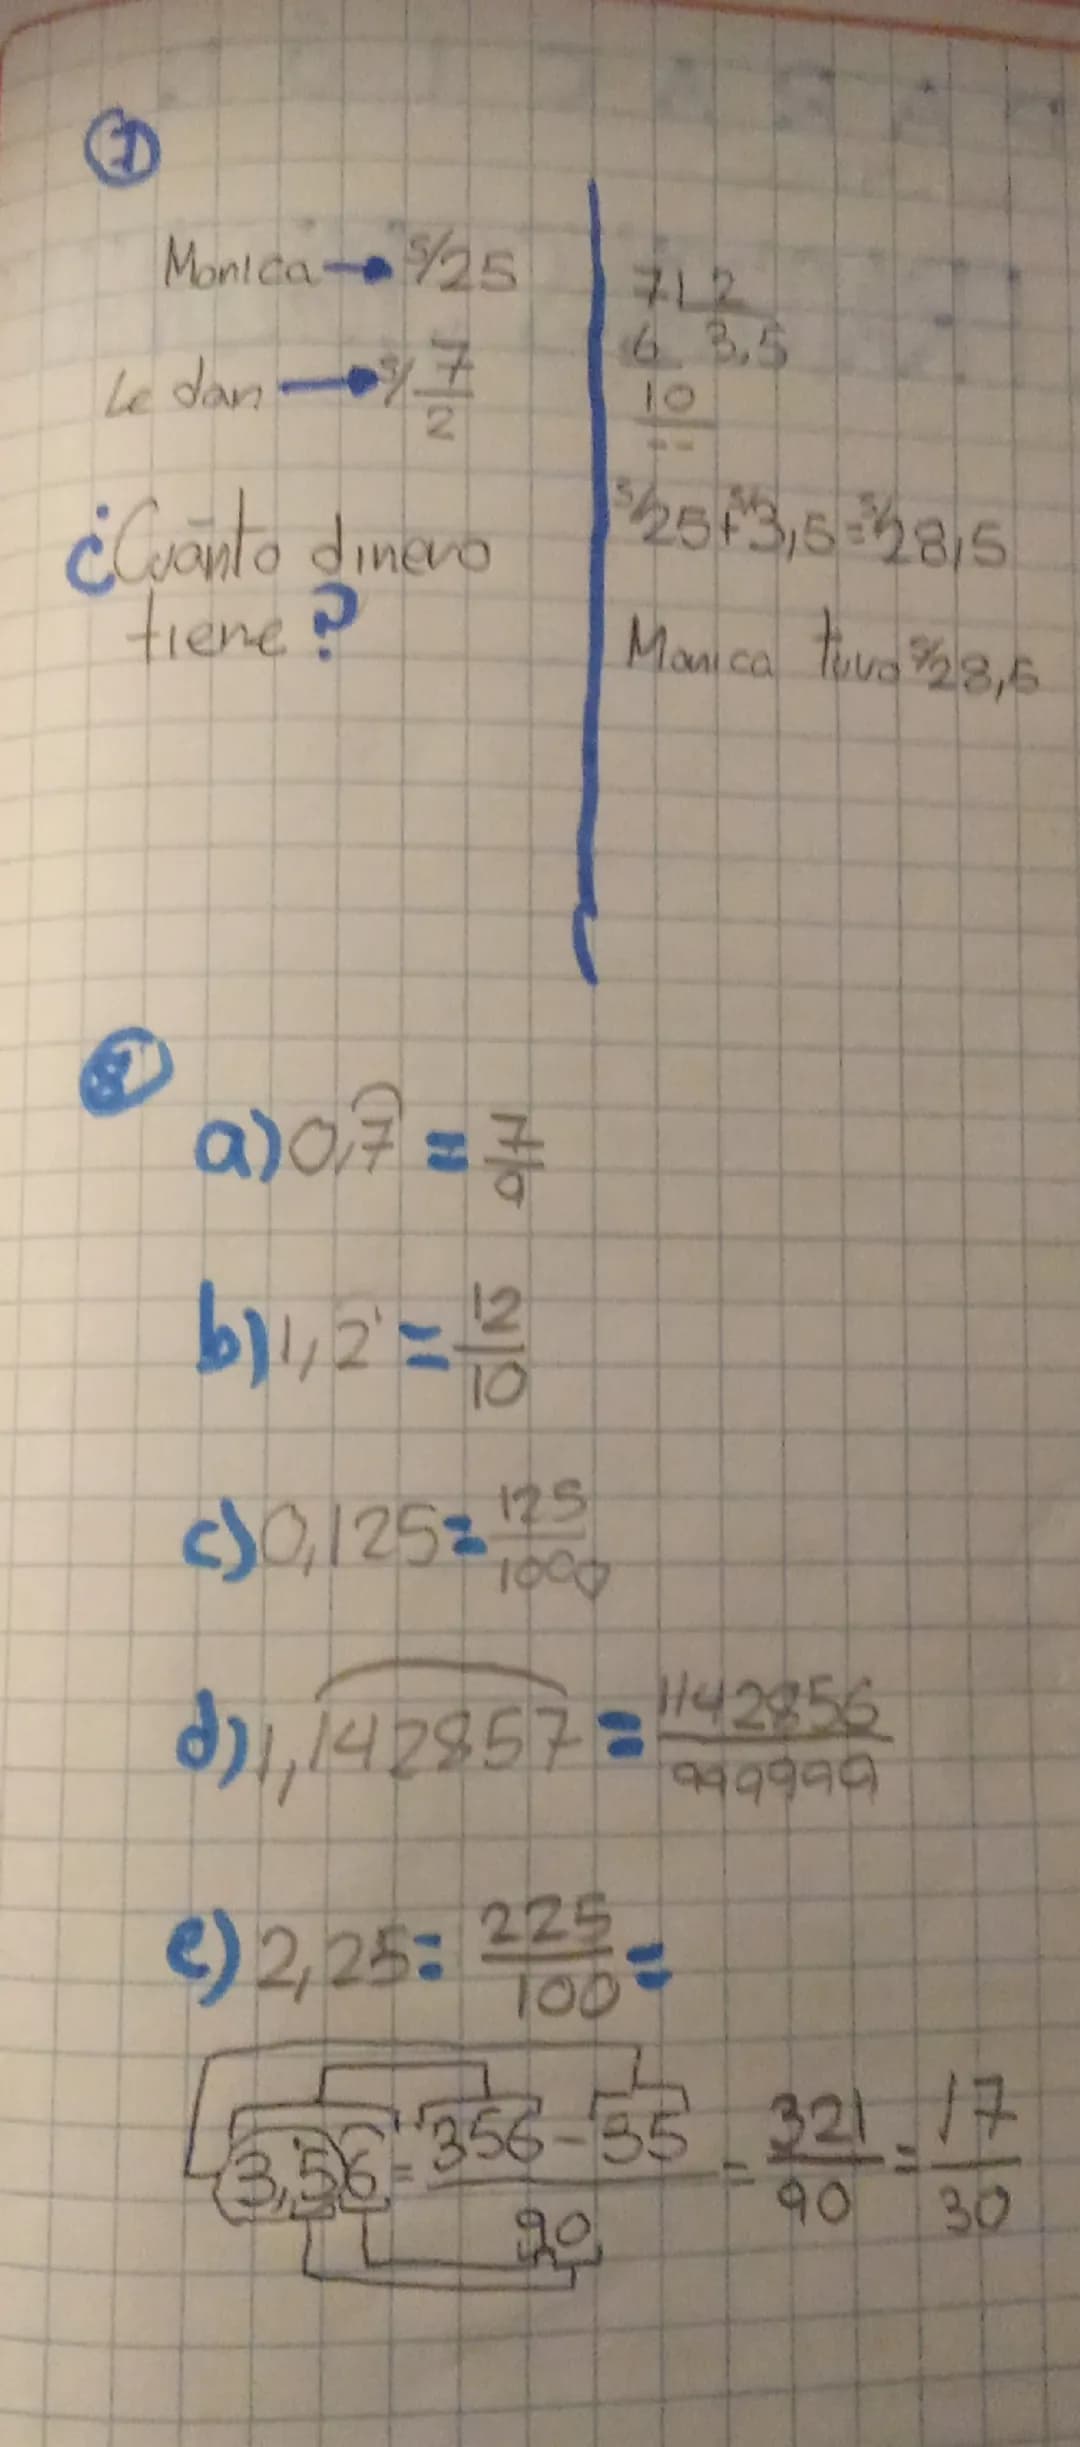 1
Monica → S/25
Le dan → S/ 7/2
¿Cuánto dinero
tiene?
7 2
6 3,5
10
--
S/25+S/3,5=S/28,5
Monica tuvo S/28,5
a) 0,7 = 7/9
b) 1,2 = 12/10
c) 0,125 = 125/1000
d) 1,142857 = 1142856/999999
e) 2,25 = 225/100 =
3,56 = 356-35/90 = 321/90 = 17/30